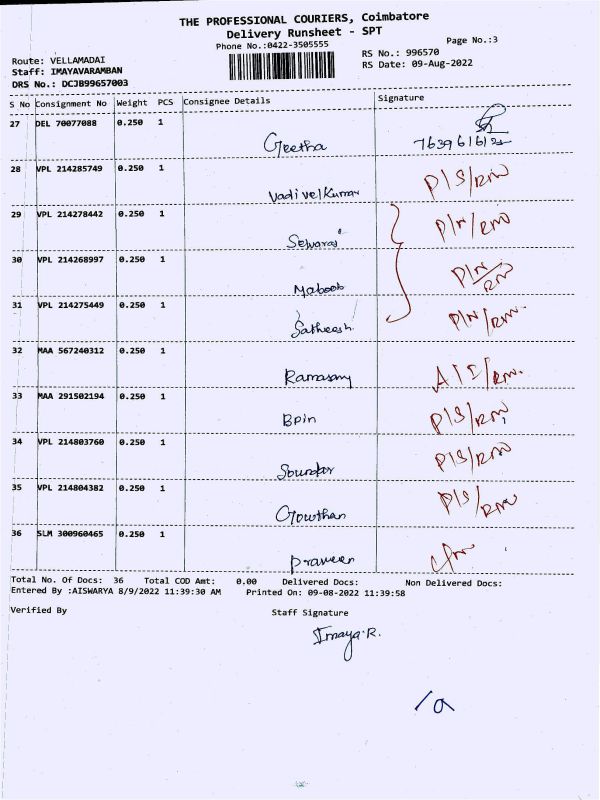 THE PROFESSIONAL COURIERS, Coimbatore
Delivery Runsheet - SPT
Phone No.:0422-3505555
Page No.:3
Route: VELLAMADAI
RS No.: 996570
Staff: IMAYAVARAMBAN
RS Date: 09-Aug-2022
DRS No.: DCJB99657003
S No Consignment No Weight PCS Consignee Details Signature
27 DEL 70077088 0.250 1
Geetha
28 VPL 214285749 0.250 1
Vadivelkumar P/S/RM
29 VPL 214278442 0.250 1
Selvaraj P/N/RM
30 VPL 214268997 0.250 1
Maboob P/N/RM
31 VPL 214275449 0.250 1
Satheesh P/N/RM
32 MAA 567240312 0.250 1
Ramasamy
33 MAA 291502194 0.250 1
Bpin P/S/RM
34 VPL 214803760 0.250 1
Soundar P/S/RM
35 VPL 214804382 0.250 1
Gowthan P/S/RM
36 SLM 300960465 0.250 1
Praveen
Total No. Of Docs: 36 Total COD Amt: 0.00 Delivered Docs: Non Delivered Docs:
Entered By :AISWARYA 8/9/2022 11:39:30 AM Printed On: 09-08-2022 11:39:58
Verified By Staff Signature
Imaya.R.